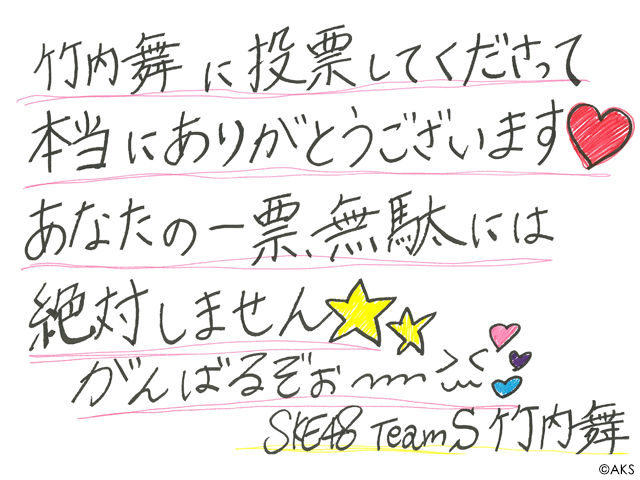 竹内舞に投票してくださって
本当にありがとうございます
あなたの一票、無駄には
絶対しません
がんばるぞぉー
SKE48 TeamS 竹内舞
©AKS